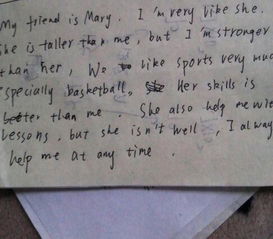 My friend is Mary. I'm very like she.
She is taller than me, but I'm stronger
than her, We like sports very muc
especially basketball, Her skills is
better than me. She also help me wit
lessons, but she isn't well, I alway
help me at any time.